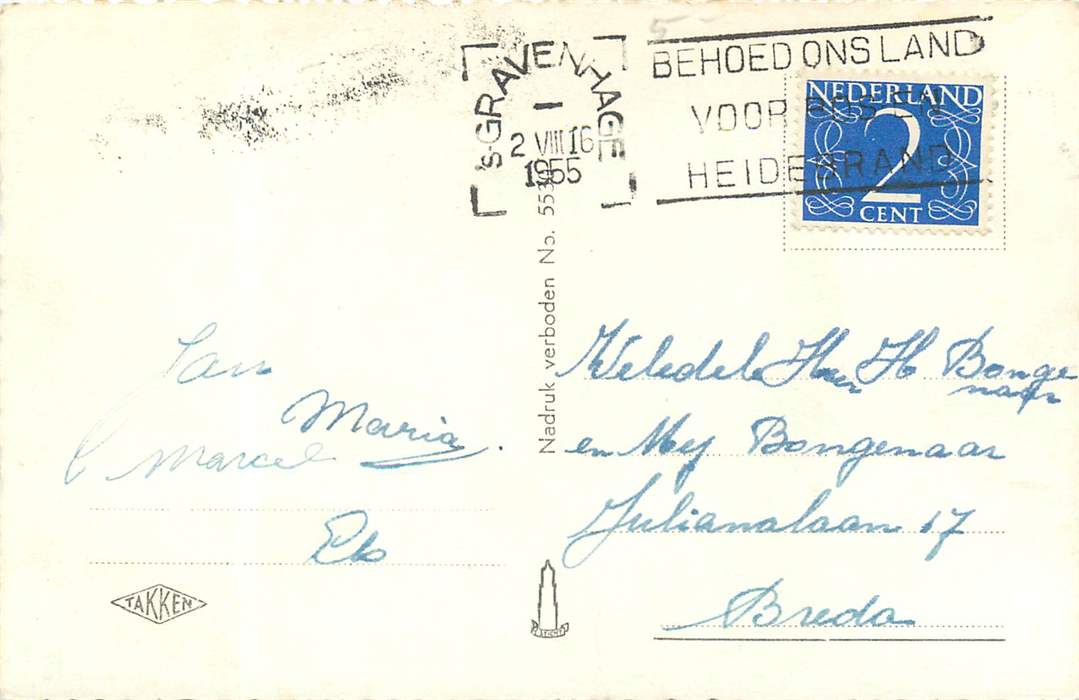 's-GRAVENHAGE
2 VIII 16
1955
BEHOED ONS LAND
VOOR BOS EN
HEIDEBRAND
NEDERLAND
2
CENT
Nadruk verboden No. 553
Jan
Maria
Marcel
Els
TAKKEN
Weledele Heer H Bonge
naar
en Mej Bongenaar
Julianalaan 17
Breda